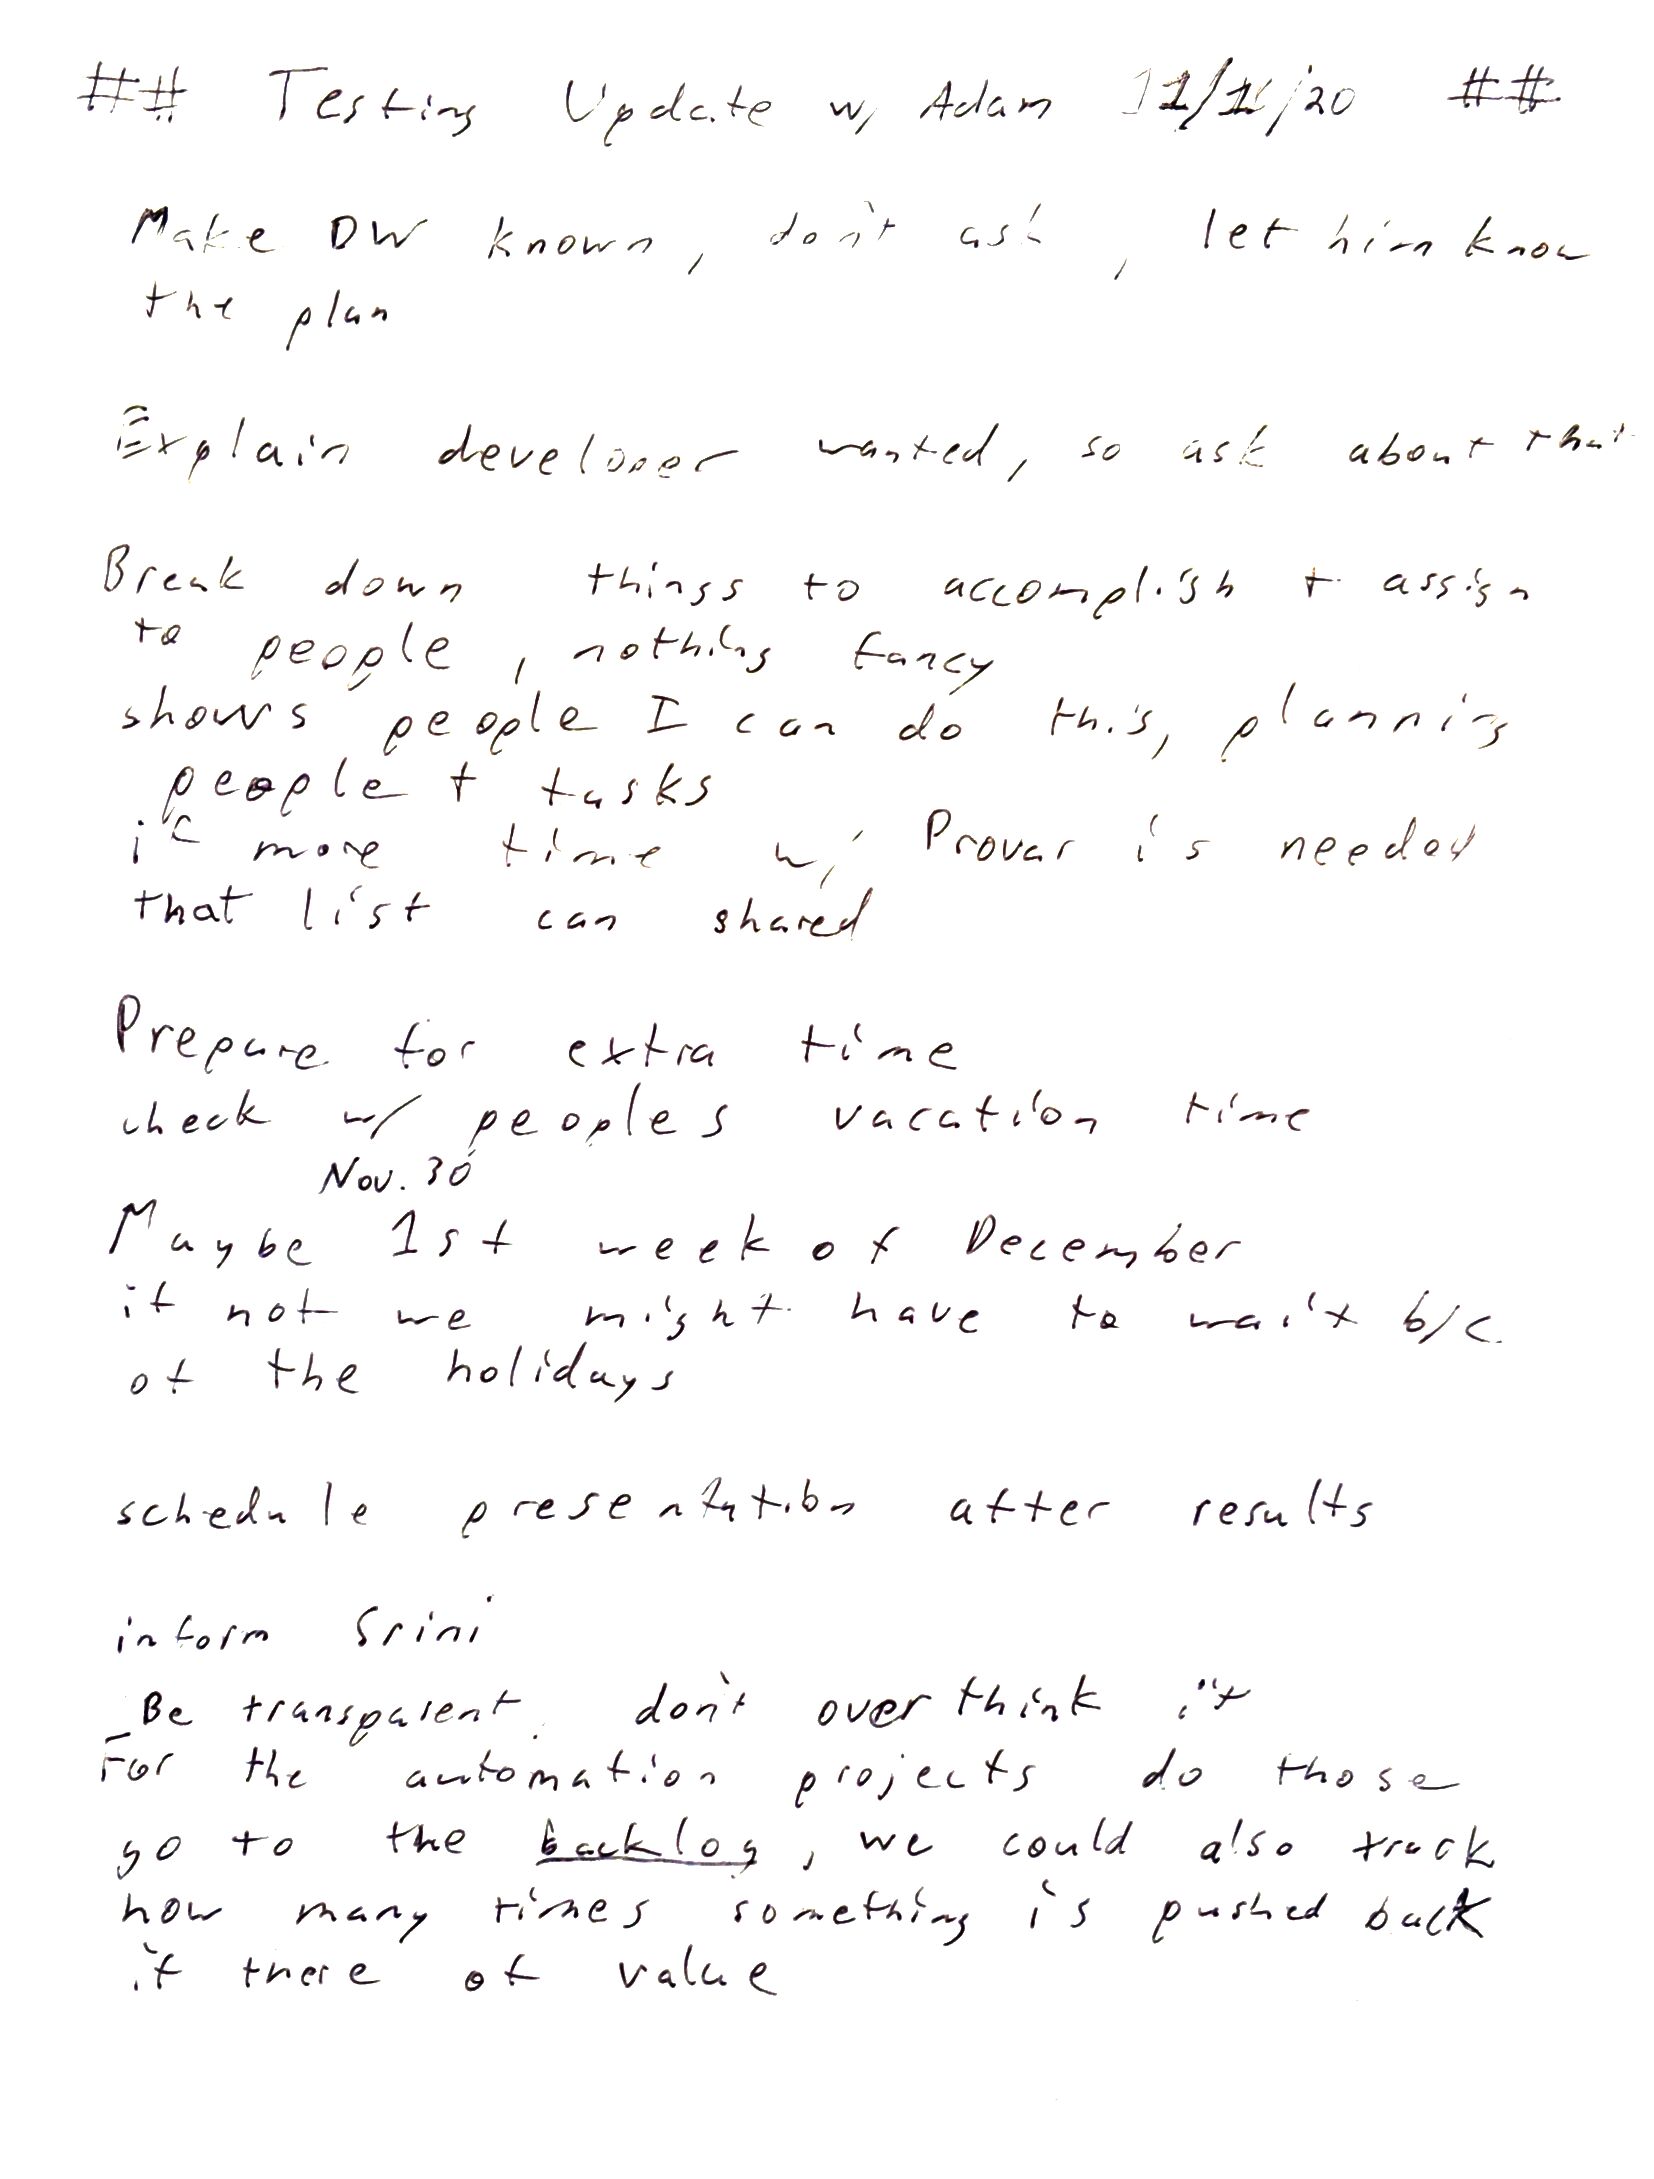 ## Testing Update w/ Adam 11/11/20 ##
Make DW known, don't ask, let him know
the plan
Explain developer wanted, so ask about that
Break down things to accomplish + assign
to people, nothing fancy
shows people I can do this, planning
people + tasks
if more time w/ Provar is needed
that list can shared
Prepare for extra time
check w/ peoples vacation time
Nov. 30
Maybe 1st week of December
if not we might have to wait b/c
of the holidays
schedule presentation after results
inform Srini
Be transparent, don't overthink it
For the automation projects do those
go to the backlog, we could also track
how many times something is pushed back
if there of value